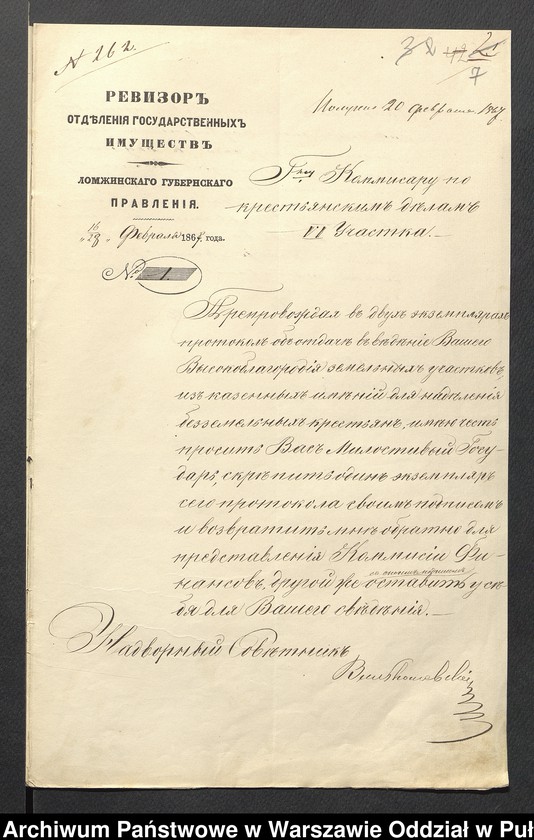 № 262.
7
РЕВИЗОРЪ
ОТДѢЛЕНІЯ ГОСУДАРСТВЕННЫХЪ
ИМУЩЕСТВЪ
ЛОМЖИНСКАГО ГУБЕРНСКАГО
ПРАВЛЕНІЯ.
16/28 Февраля 1867 года.
№ 1.
20 Февраля 1867
Гну Коммисару по
крестьянскимъ дѣламъ
VI Участка.
Препровождая въ двухъ экземплярахъ
протоколъ объ отдачѣ въ вѣдѣніе Вашего
Высокоблагородія земельныхъ участковъ,
изъ казенныхъ имѣній для надѣленія
безземельныхъ крестьянъ, имѣю честь
просить Васъ Милостивый Госу-
дарь, скрѣпить одинъ экземпляръ
сего протокола своимъ подписомъ
и возвратить мнѣ обратно для
представленія Коммисіи Фи-
нансовъ, другой же оставить у се-
бя для Вашего свѣдѣнія.
Надворный Совѣтникъ
Archiwum Państwowe w Warszawie Oddział w Puł